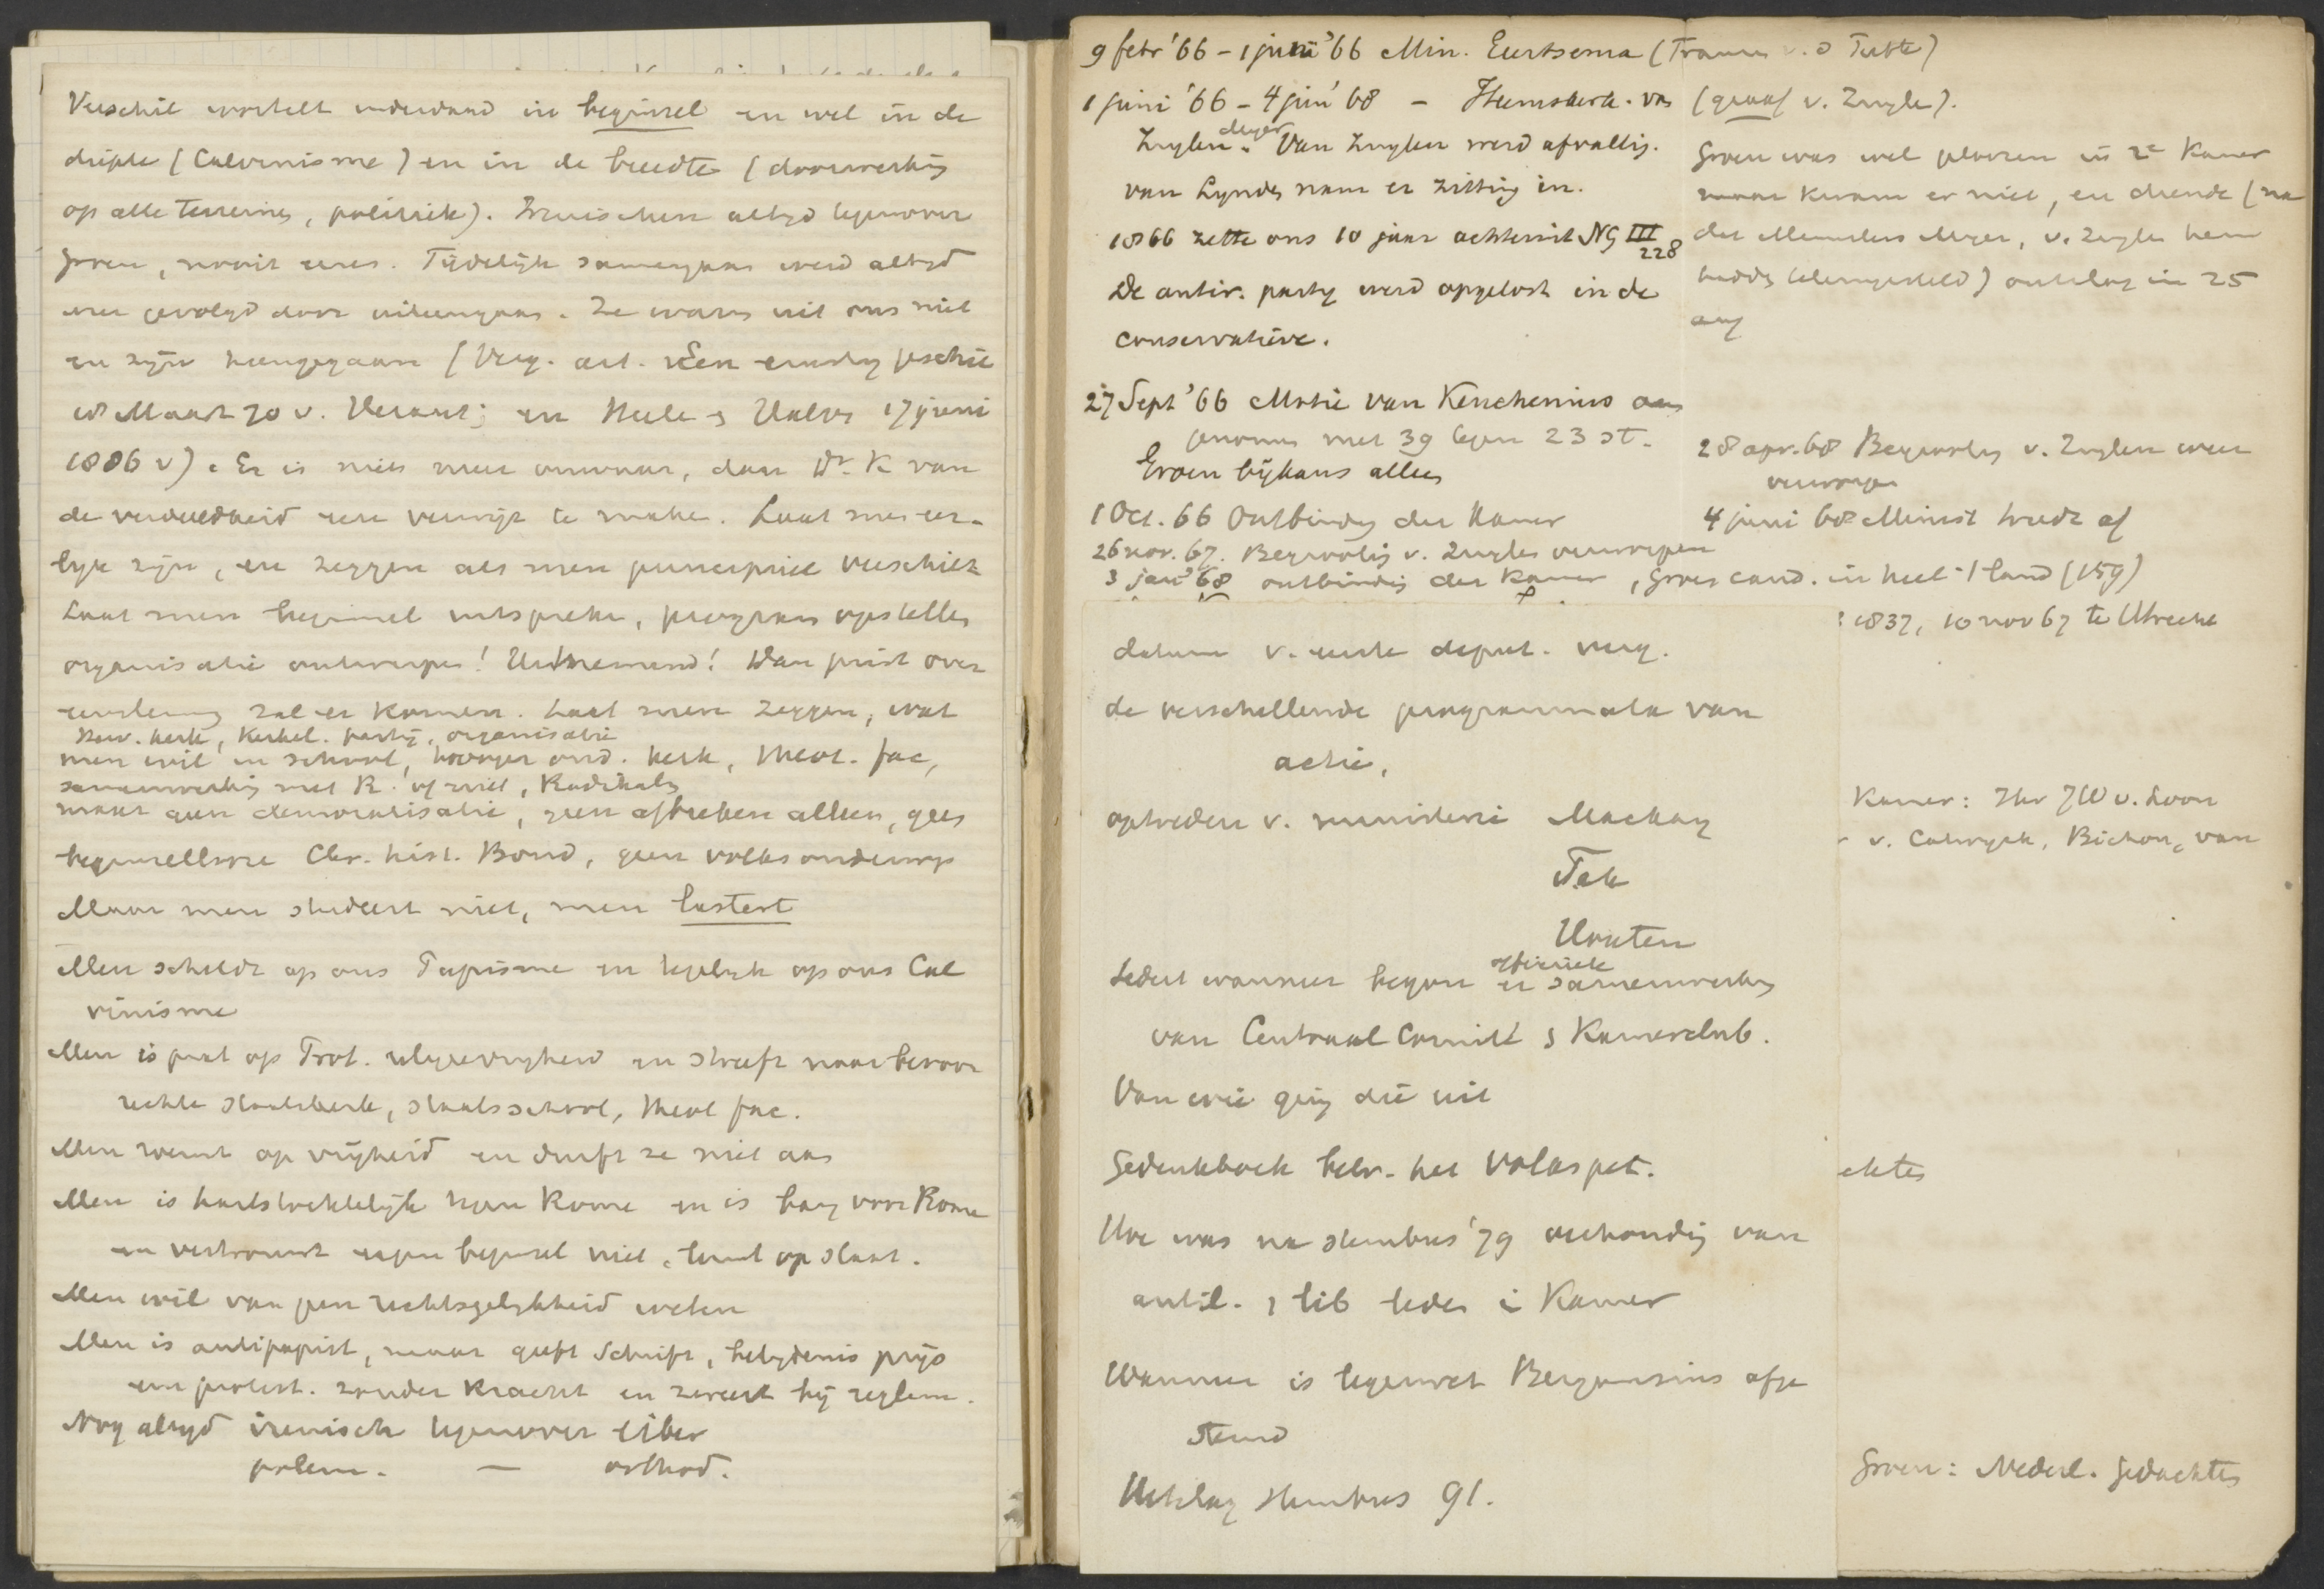 Verschil wortelt inderdaad in beginsel en wel in de
diepte (Calvinisme) en in de breedte (doorwerking
op alle terreinen, politiek). Irenischen altijd tegenover
Groen, nooit eens. Tijdelijk samengaan werd altijd
weer gevolgd door uiteengaan. Ze waren uit ons niet
en zijn heengegaan (Verg. art. Een ernstig geschil
18 Maart 70 v. Heraut; en Heele & Halve 17 juni
1886 v). Er is niets meer onwaar, dan Dr. K van
de verdeeldheid een verwijt te maken. Laat men eer-
lijk zijn, en zeggen als men principieel verschilt
Laat men beginsel uitspreken, program opstellen
organisatie ontwerpen! Uitnemend! Dan juist over
zal er komen. Laat men zeggen, wat
Herv. kerk, Kerkel. partij, organisatie
men wil in school, hooger ond. kerk, theol. fac,
samenwerking met R. of niet, Radikalen
maar geen demoralisatie, geen afbreken alleen, geen
beginsellooze Chr. hist. Bond, geen volksonderwijs
Maar men studeert niet, men lastert
Men scheldt op ons Papisme en tegelijk op ons Cal
vinisme
Men is prat op Prot. vrijheid en streeft naar bevoor
rechte staatskerk, staatsschool, theol fac.
Men roemt op vrijheid en durft ze niet aan
Men is hartstochtelijk tegen Rome en is bang voor Rome
en vertrouwt eigen beginsel niet, leunt op staat.
Men wil van geen rechtsgelijkheid weten
Men is antipapist, maar geeft Schrift, belijdenis prijs
een protest. zonder kracht en zweert bij reglem.
Nog altijd irenisch tegenover liber
polem. — orthod.
9 febr '66 – 1 juni '66 Min. Eertsema (Fransen v. d Putte)
1 juni '66 – 4 juni '68 – Heemskerk. van (graaf v. Zuyle).
Zuylen. Van Zuylen werd afvallig.
van Lynden nam er zitting in.
1866 zette ons 10 jaar achteruit NG III
228
De antir. party werd opgelost in de
conservatieve.
Groen was wel gekozen in 2e Kamer
maar kwam er niet, en diende (na
dat Meenders Meyer, v. Zuylen hem
hadden teleurgesteld) ontslag in 25
aug
27 Sept '66 Motie van Keuchenius aan
genomen met 39 tegen 23 st.
Groen bijkans alleen
1 Oct. 66 Ontbinding der Kamer
26 nov. 67. Begrooting v. Zuylen verworpen
3 jan '68 ontbinding der Kamer, Groen cand. in heel 't land (159)
28 apr. 68 Begrooting v. Zuylen weer
verworpen
4 juni 68 Minist treedt af
: 1837, 10 nov 67 te Utrecht
datum v. eerste deput. verg.
de verschillende programmata van
actie,
optreden v. ministerie Mackay
Tak
Houten
Sedert wanneer begon er samenwerking
officieele
van Centraal Comité & Kamerclub.
Van wie ging die uit
Gedenkboek betr. het Volkspet.
Hoe was na stembus '79 verhouding van
antil. & lib leden i Kamer
Wanneer is legerwet Bergansius afge
stemd
Uitslag stembus 91.
Kamer: Jhr JW v. Loon
v. Catwyck, Bichon, van
chten
Groen: Nederl. Gedachten